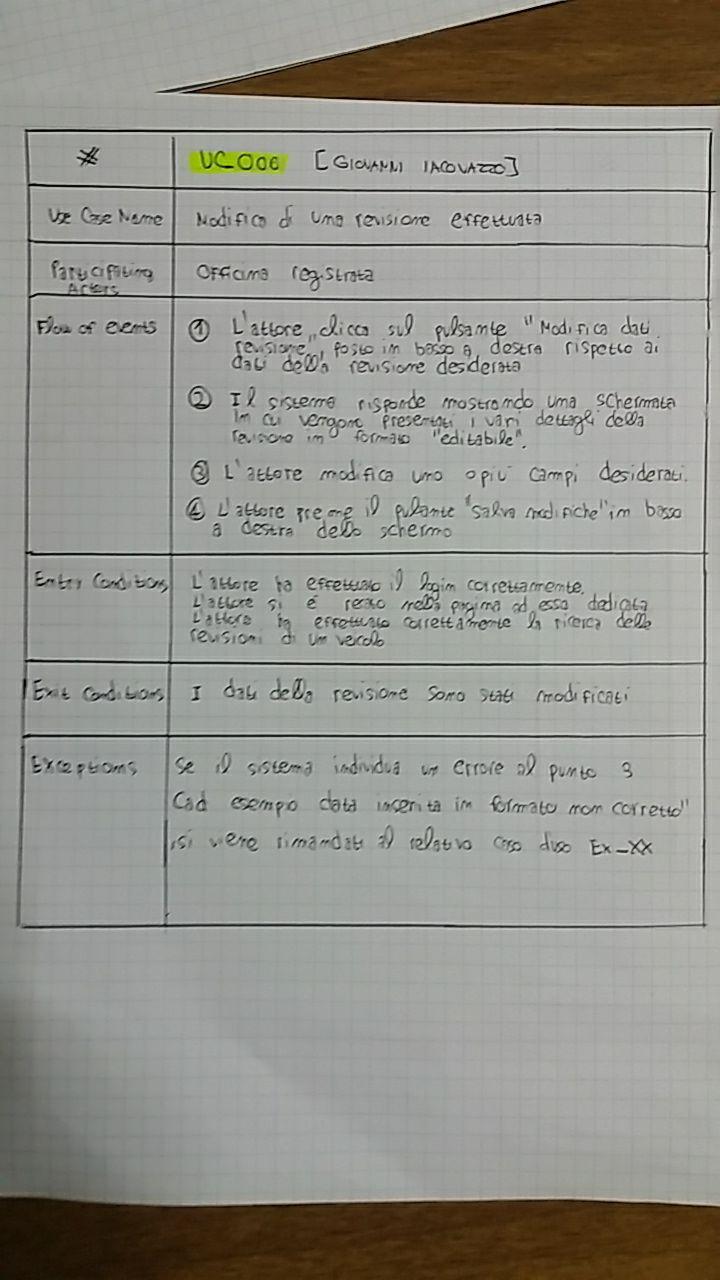 # UC_006 [GIOVANNI IACOVAZZO]
Use Case Name Modifica di una revisione effettuata
Participating
Actors Officina registrata
Flow of events ① L'attore clicca sul pulsante "Modifica dati
revisione" posto in basso a destra rispetto ai
dati della revisione desiderata
② Il sistema risponde mostrando una schermata
in cui vengono presentati i vari dettagli della
revisione in formato "editabile".
③ L'attore modifica uno o più campi desiderati.
④ L'attore preme il pulante "Salva modifiche" in basso
a destra dello schermo
Entry Conditions L'attore ha effettuato il login correttamente.
L'attore si è recato nella pagina ad esso dedicata
L'attore ha effettuato correttamente la ricerca delle
revisioni di un veicolo
Exit Conditions I dati della revisione sono stati modificati
Exceptions Se il sistema individua un errore al punto 3
(ad esempio data inserita in formato non corretto"
si viene rimandati al relativo caso d'uso Ex_XX